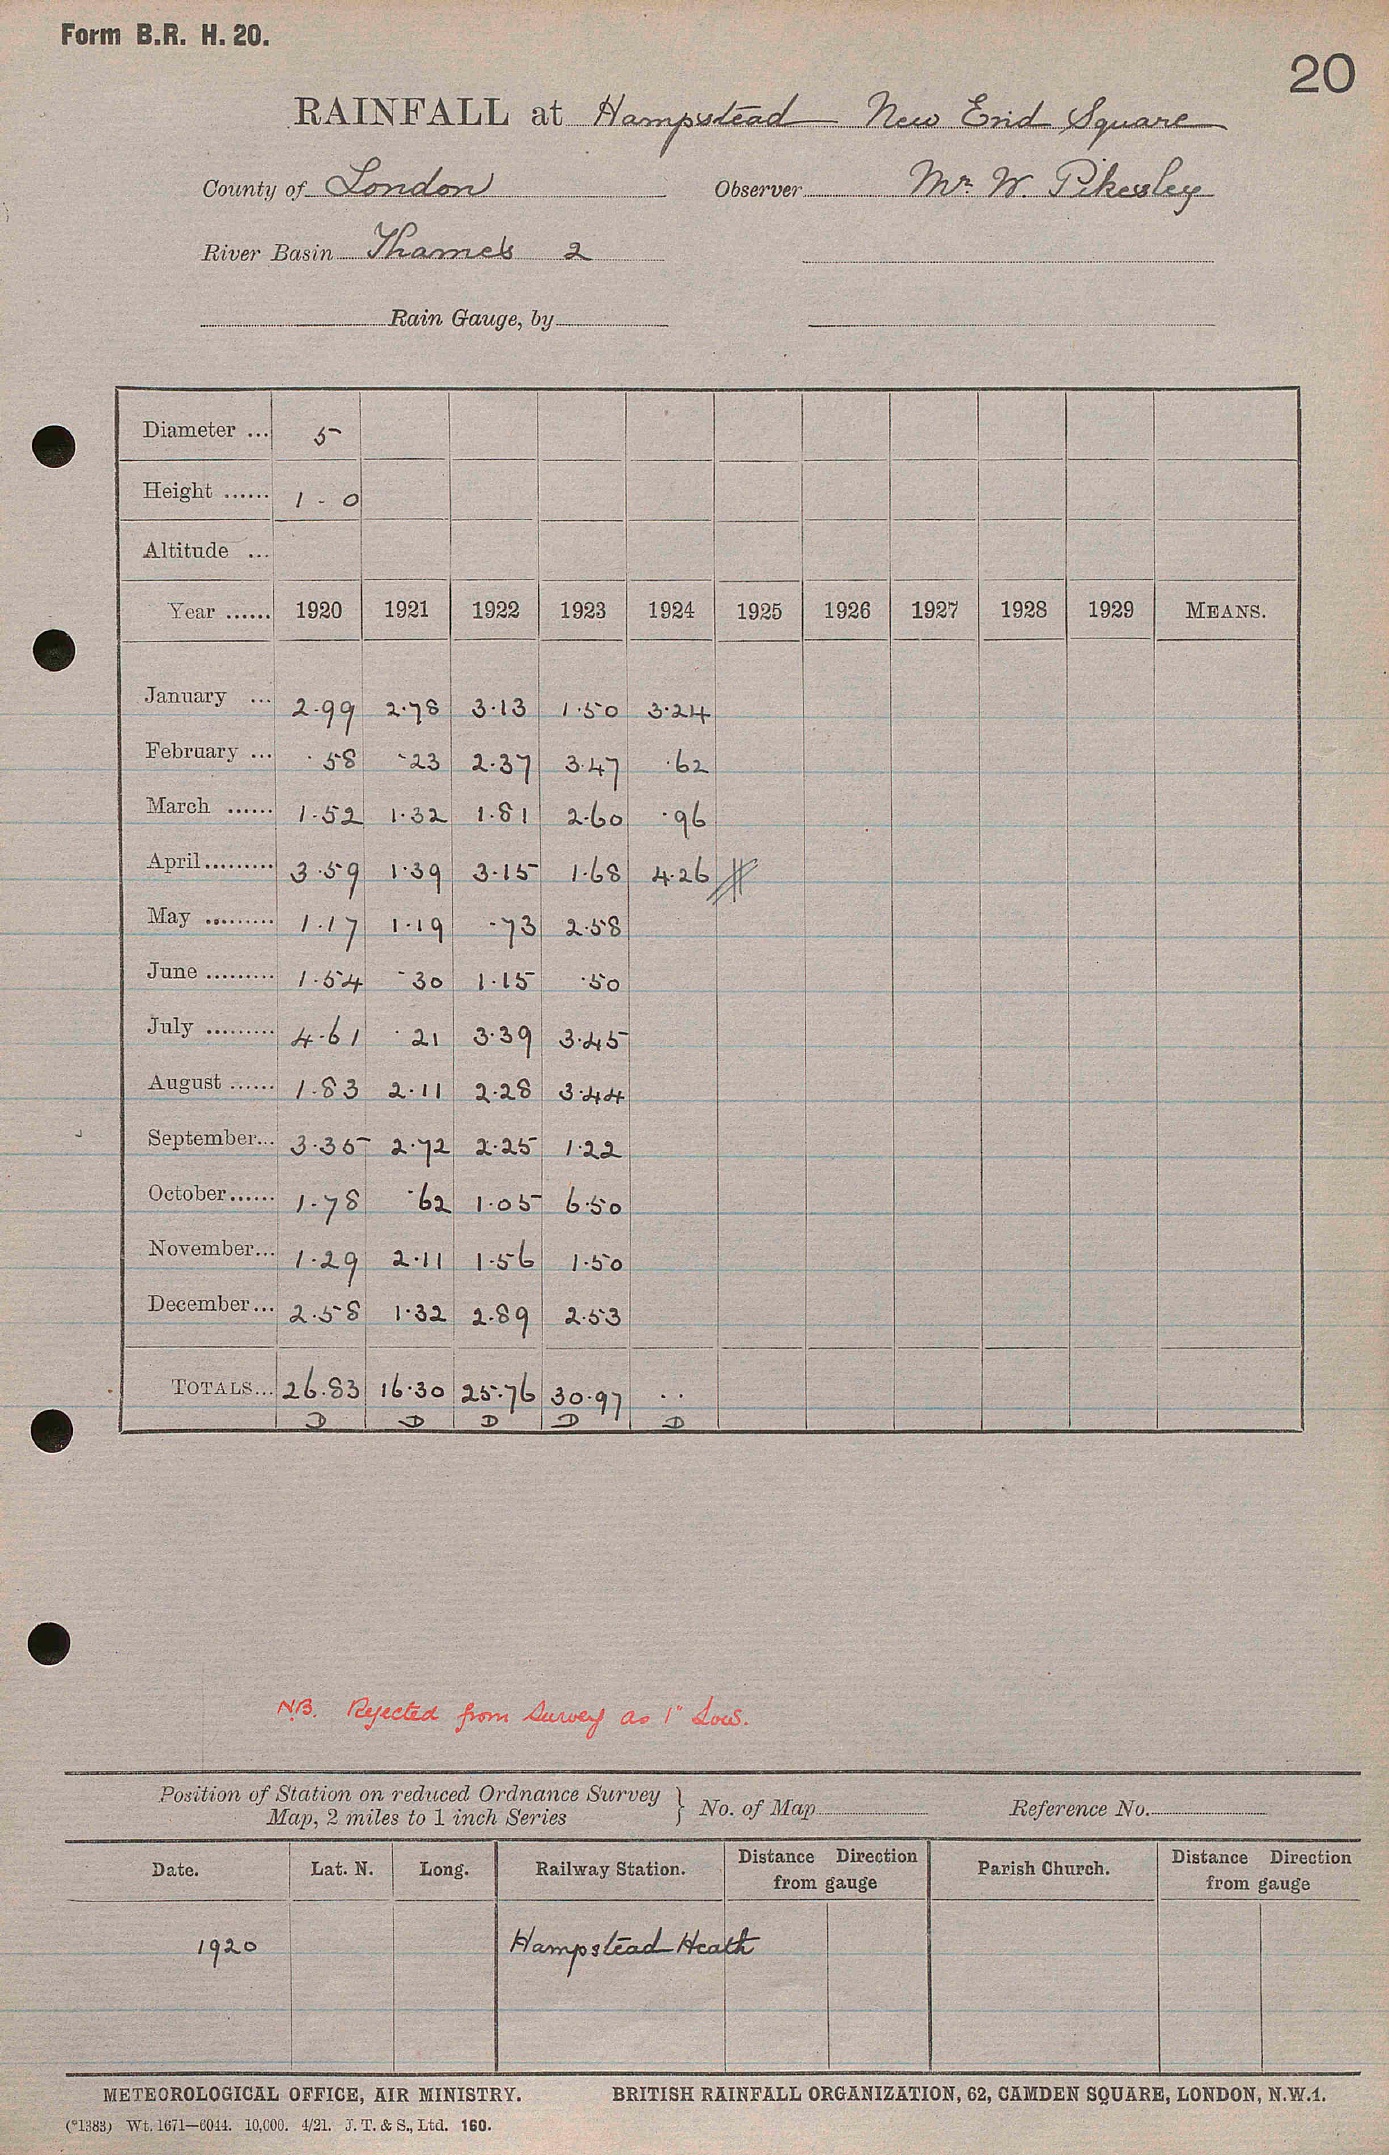 Form B.R. H. 20.
20
RAINFALL at Hampstead New End Square
County of London Observer Mr. W. Pikesley
River Basin Thames 2
Rain Gauge, by
Diameter ... 5
Height ...... 1 - 0
Altitude ...
Year ...... 1920 1921 1922 1923 1924 1925 1926 1927 1928 1929 MEANS.
January ... 2.99 2.78 3.13 1.50 3.24
February ... .58 .23 2.37 3.47 .62
March ...... 1.52 1.32 1.81 2.60 .96
April ......... 3.59 1.39 3.15 1.68 4.26
May ......... 1.17 1.19 .73 2.58
June ......... 1.54 .30 1.15 .50
July ......... 4.61 .21 3.39 3.45
August ...... 1.83 2.11 2.28 3.44
September... 3.35 2.72 2.25 1.22
October...... 1.78 .62 1.05 6.50
November... 1.29 2.11 1.56 1.50
December... 2.58 1.32 2.89 2.53
TOTALS... 26.83 16.30 25.76 30.97 . .
D D D D D
N.B. Rejected from Survey as 1" Low.
Position of Station on reduced Ordnance Survey
Map, 2 miles to 1 inch Series } No. of Map Reference No.
Date. Lat. N. Long. Railway Station. Distance Direction from gauge Parish Church. Distance Direction from gauge
1920 Hampstead Heath
METEOROLOGICAL OFFICE, AIR MINISTRY. BRITISH RAINFALL ORGANIZATION, 62, CAMDEN SQUARE, LONDON, N.W.1.
(*1383) Wt. 1671—6044. 10,000. 4/21. J. T. & S., Ltd. 160.